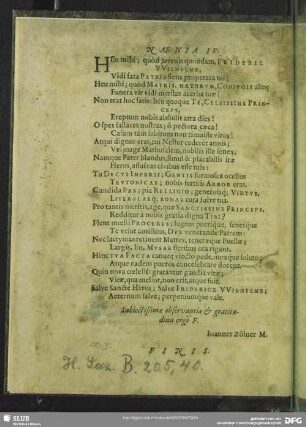 NÆNIA IV.
HEu mihi; quòd juvenis quondam, FRIDERICE
VVILHELME,
Vidi fata PATRIS flens properata tui!
Heu mihi; quòd MATRIS, NATORUM, CONIUGIS atque
Funera vir vidi mœstus acerba tuæ!
Non erat hoc satis: heu quoque TE, CELSISSIME PRINCEPS,
Ereptum nobis abstulit atra dies!
O spes fallaces nostras; ô pectora cæca!
Casum tam subitum non timuisse viros!
Atqui dignus eras, qui Nestor cederet annis;
Vel magè Mathusalem, nobilis ille senex.
Namque Pater blandus, simul & placabilis iræ
Heros, assuetus civibus esse tuis:
Tu DECUS IMPERII; GENTIS
TEUTONICAE; nobis fortiùs ARBOR eras.
Candida PAX; pia RELIGIO; generosaq; VIRTUS,
LITERULAEQ; BONAE cura fuêre tua.
Pro tantis meritis, age, quæ SANCTISSIME PRINCEPS,
Redditur à nobis gratia digna TIBI?
Flent mœsti PROCERES; lugent puerique, senesque
Te velut amissum, DUX venerande Patrem:
Nec lacrymas retinent Matres, teneræque Puellæ;
Largis, en, MUSAE fletibus ora rigant.
Hinc TUA FACTA canunt vincto pede, moxque soluto;
Atque eadem pueros concelebrare docent.
Quin nova cœlesti: gratantur gaudia vitæ;
Vitæ, quâ melior, non erit, atque fuit.
Salve Sancte Heros; Salve FRIDERICE VVILHELME;
Aeternum salve; perpetuumque vale.
Subiectissimæ observantiæ & gratitudinis ergò F.
Joannes Zölner M.
FINIS.
H. Sax. B. 205, 40.
SLUB
DFG